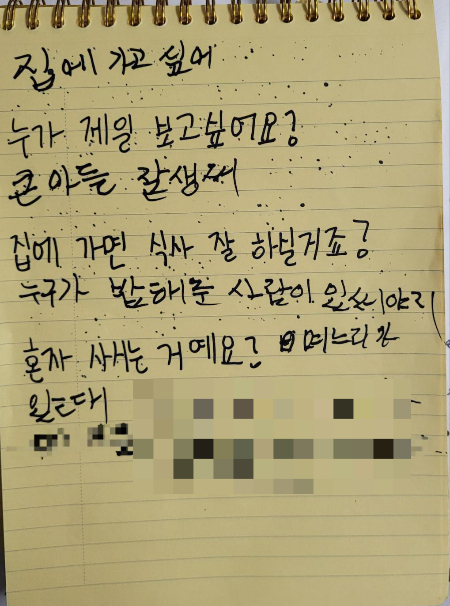 집에 가고 싶어
누가 제일 보고싶어요?
큰아들 잘생
집에 가면 식사 잘 하실거죠?
누구가 밥해준 사람이 있써야지
혼자 사시는 거예요? 며느리가
있는대